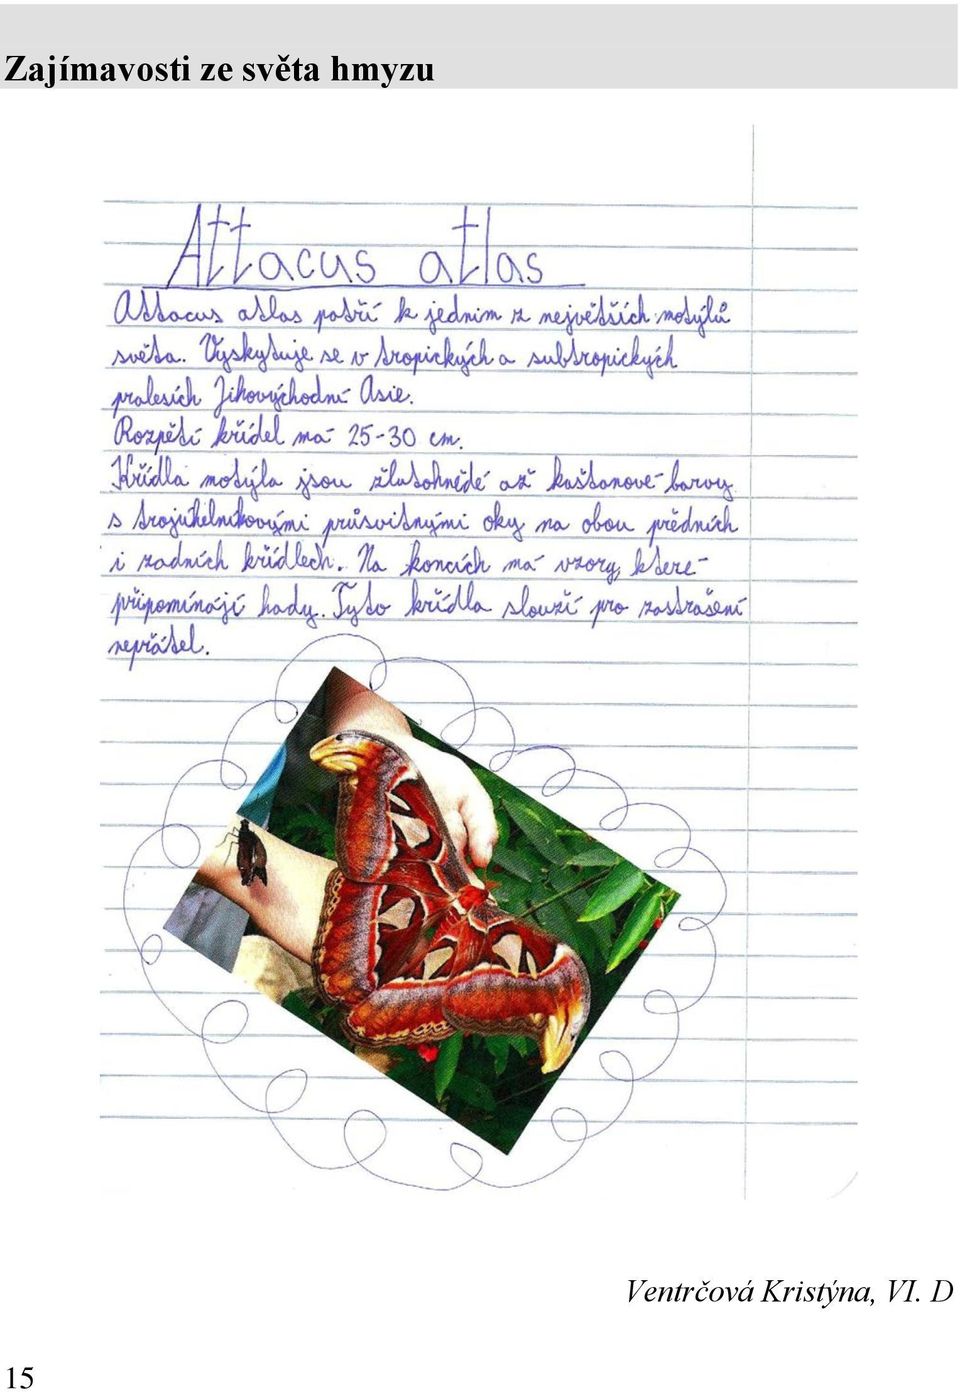 Zajímavosti ze světa hmyzu
Attacus atlas
Attacus atlas patří k jedním z největších motýlů
světa. Vyskytuje se v tropických a subtropických
pralesích Jihovýchodní Asie.
Rozpětí křídel má 25-30 cm.
Křídla motýla jsou žlutohnědé až kaštanové barvy
s trojúhelníkovými průsvitnými oky na obou předních
i zadních křídlech. Na koncích má vzory, které
připomínají hady. Tyto křídla slouží pro zastrašení
nepřátel.
Ventrčová Kristýna, VI. D
15